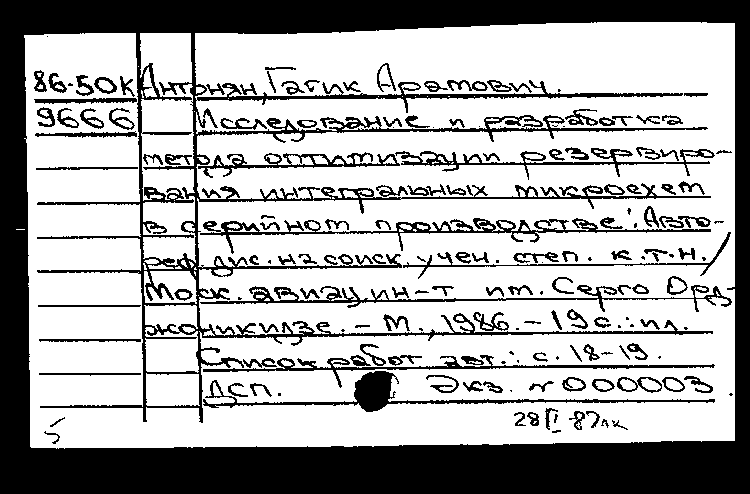 86-50К Антонян, Гагик Арамович.
9666 Исследование и разработка
метода оптимизации резервиро-
вания интегральных микросхем
в серийном производстве: Авто-
реф. дис. на соиск. учен. степ. к.т.н./
Моск. авиац. ин-т им. Серго Орд-
жоникидзе. - М., 1986. - 19 с.: ил.
Список работ авт.: с. 18-19.
ДСП. Экз. № 000003.
5 28 I 87